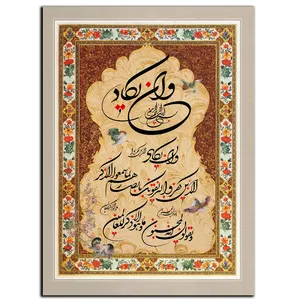 وان یکاد
وان یکاد
الذین کفروا لیزلقونک بابصارهم لما سمعوا الذکر
و یقولون انه لمجنون
و ما هو الا ذکر للعالمین